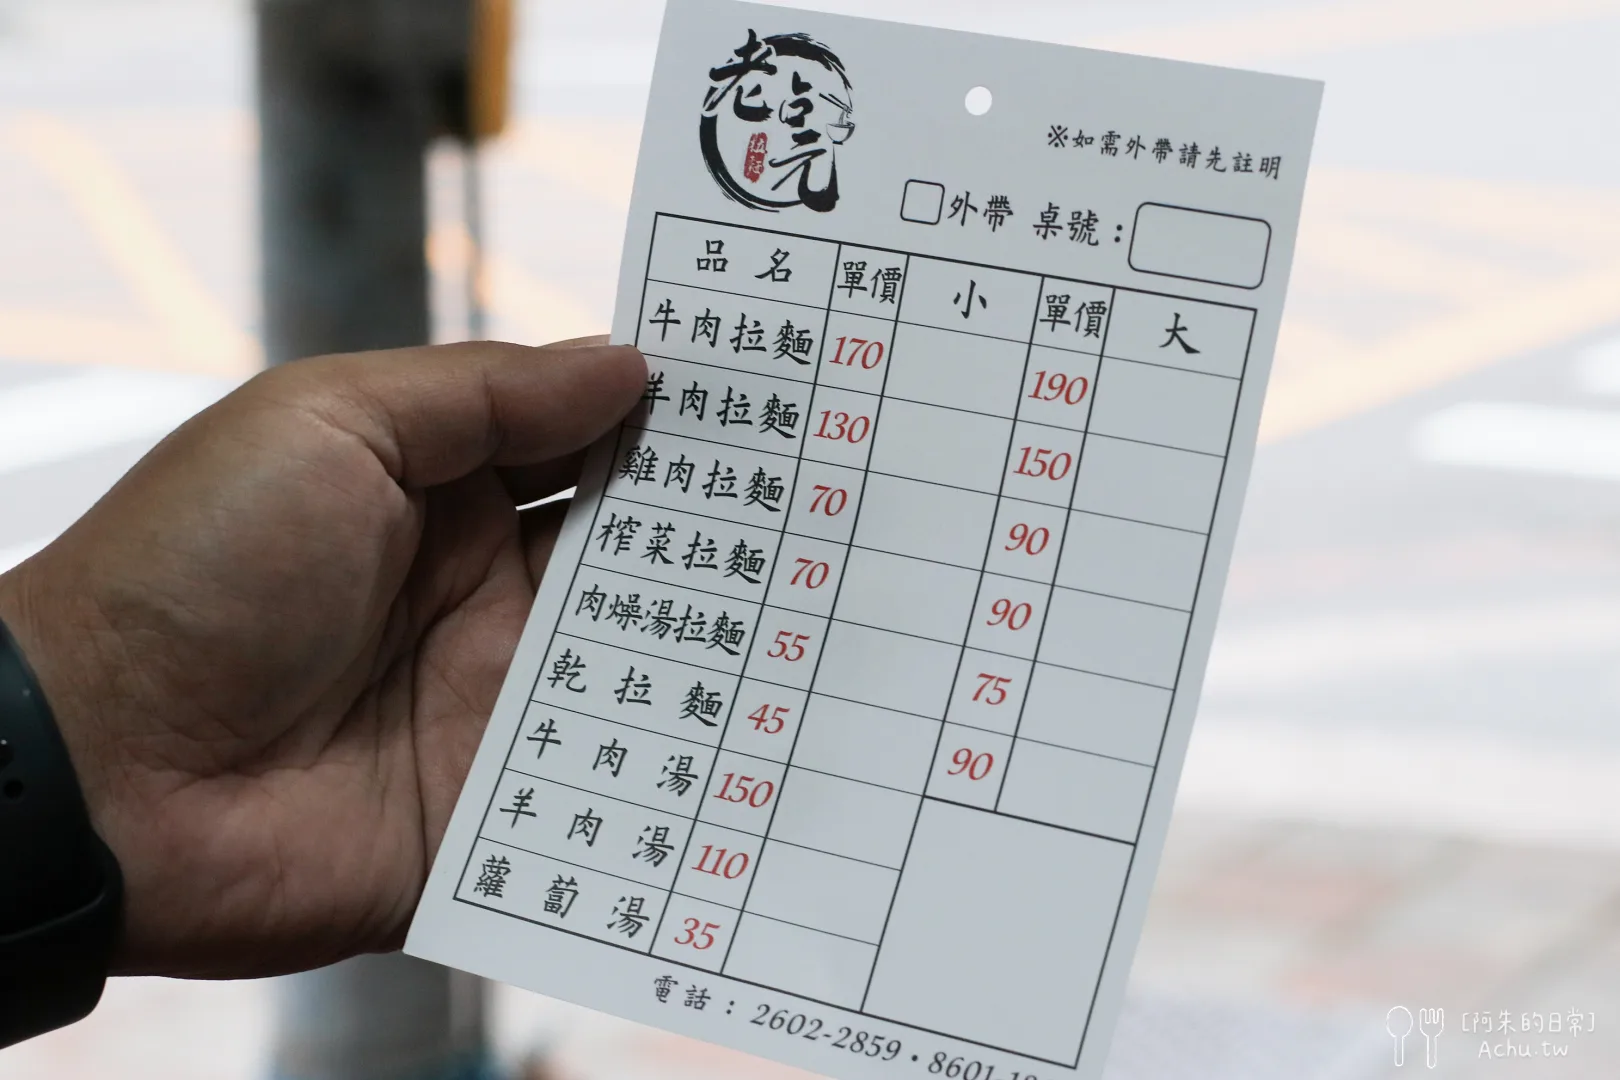 老占元
拉麵
※如需外帶請先註明
外帶 桌號：
品名 單價 小 單價 大
牛肉拉麵 170 190
羊肉拉麵 130 150
雞肉拉麵 70 90
榨菜拉麵 70 90
肉燥湯拉麵 55 75
乾拉麵 45 90
牛肉湯 150
羊肉湯 110
蘿蔔湯 35
電話：2602-2859・8601-
[阿朱的日常]
Achu.tw